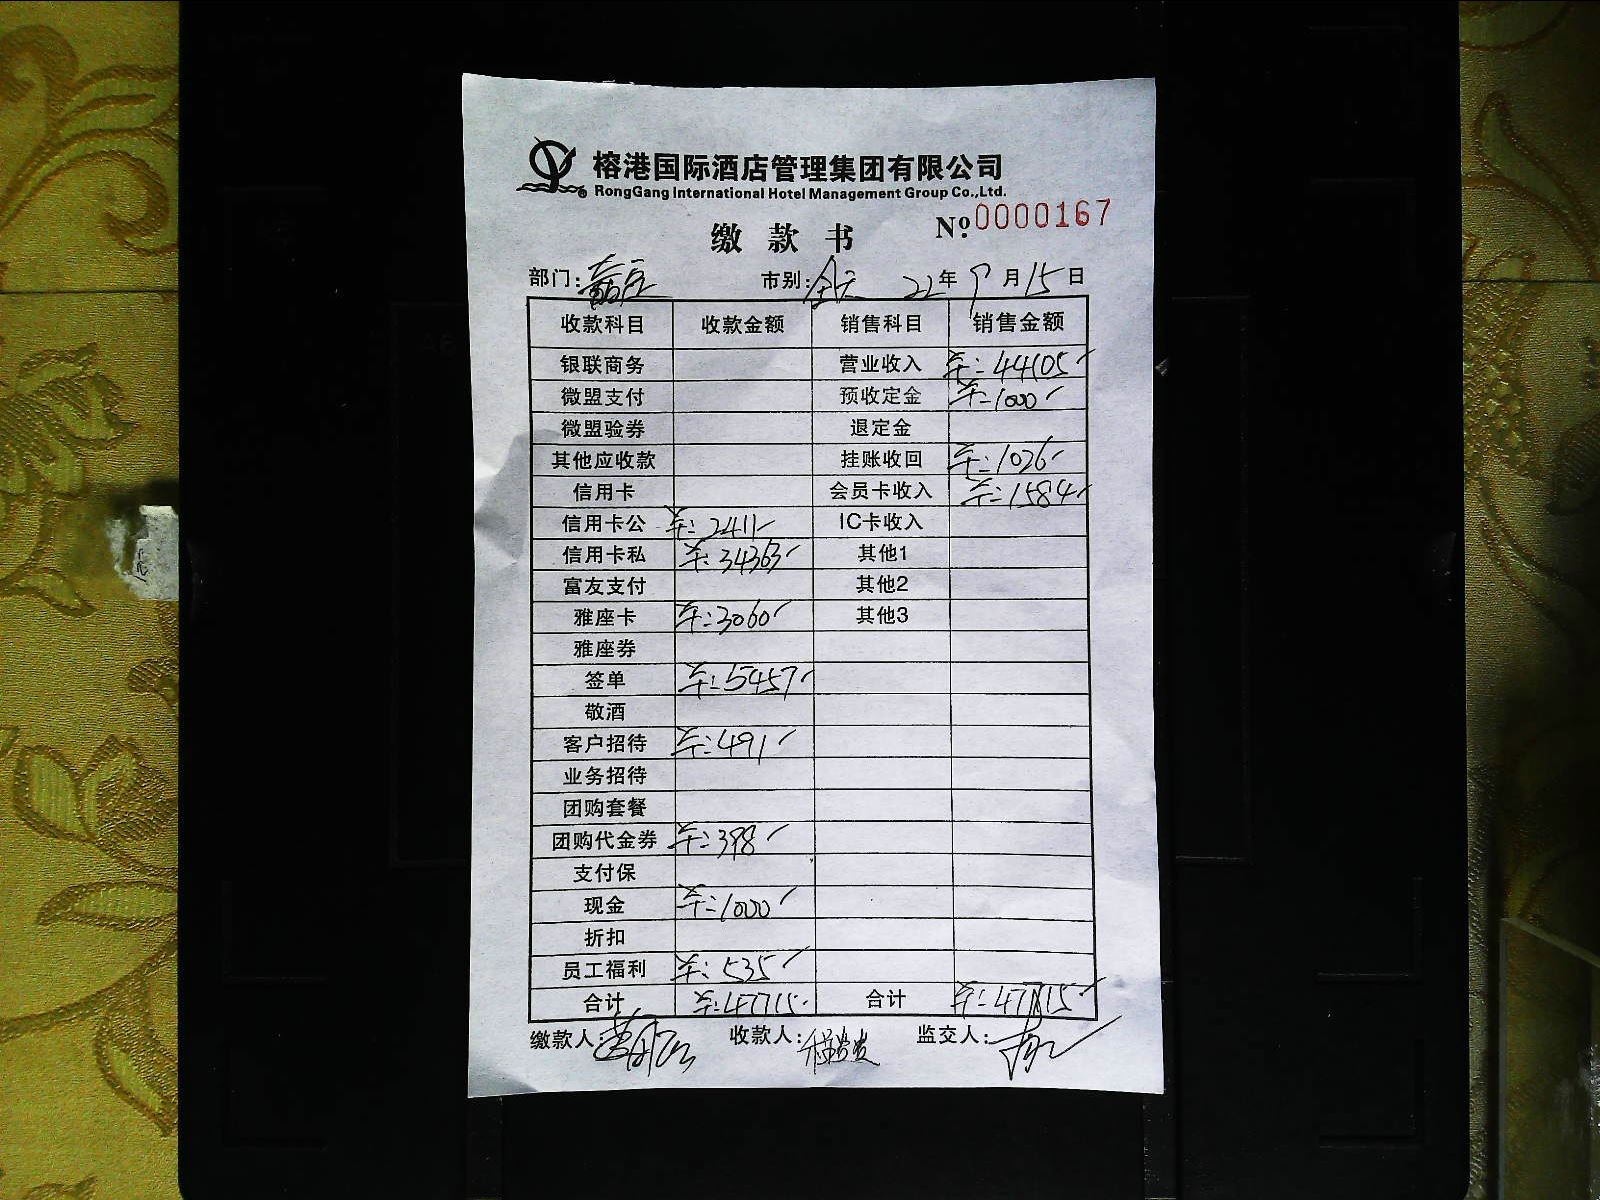 榕港国际酒店管理集团有限公司
RongGang International Hotel Management Group Co.,Ltd.
缴款书 Nº 0000167
部门: 市别: 全天 22年9月15日
收款科目 收款金额 销售科目 销售金额
银联商务 营业收入 ¥:44105
微盟支付 预收定金 ¥:1000
微盟验券 退定金
其他应收款 挂账收回 ¥:1026
信用卡 会员卡收入 ¥:1584
信用卡公 ¥:2411 IC卡收入
信用卡私 ¥:34363 其他1
富友支付 其他2
雅座卡 ¥:3060 其他3
雅座券
签单 ¥:5457
敬酒
客户招待 ¥:491
业务招待
团购套餐
团购代金券 ¥:398
支付保
现金 ¥:1000
折扣
员工福利 ¥:535
合计 ¥:47715 合计 ¥:47715
缴款人: 收款人: 监交人: